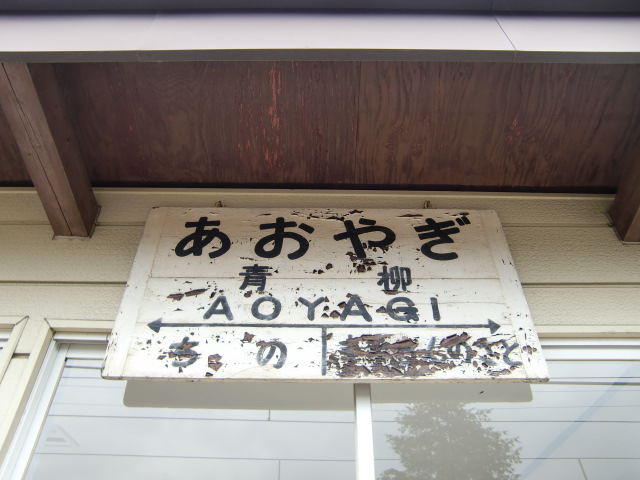 あおやぎ
青柳
AOYAGI
ちの